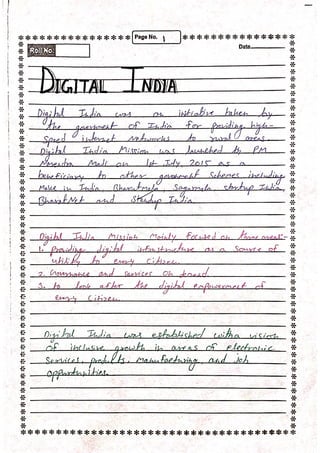 Page No. 1
Roll No.
Date
DIGITAL INDIA
Digital India was an initiative taken by
the government of India for providing high-
speed internet networks to rural areas.
Digital India Mission was launched by PM
Narendra Modi on 1st July 2015 as a
beneficiary to other government schemes including
Make in India, Bharatmala, Sagarmala, startup India,
BharatNet and Standup India.
Digital India Mission Mainly focused on three areas:-
1. Providing digital infrastructure as a source of
utility to every citizen.
2. Governance and services on demand.
3. to look after the digital empowerment of
every citizen.
Digital India was established with a vision
of inclusive growth in areas of electronic
services, products, manufacturing and job
opportunities.